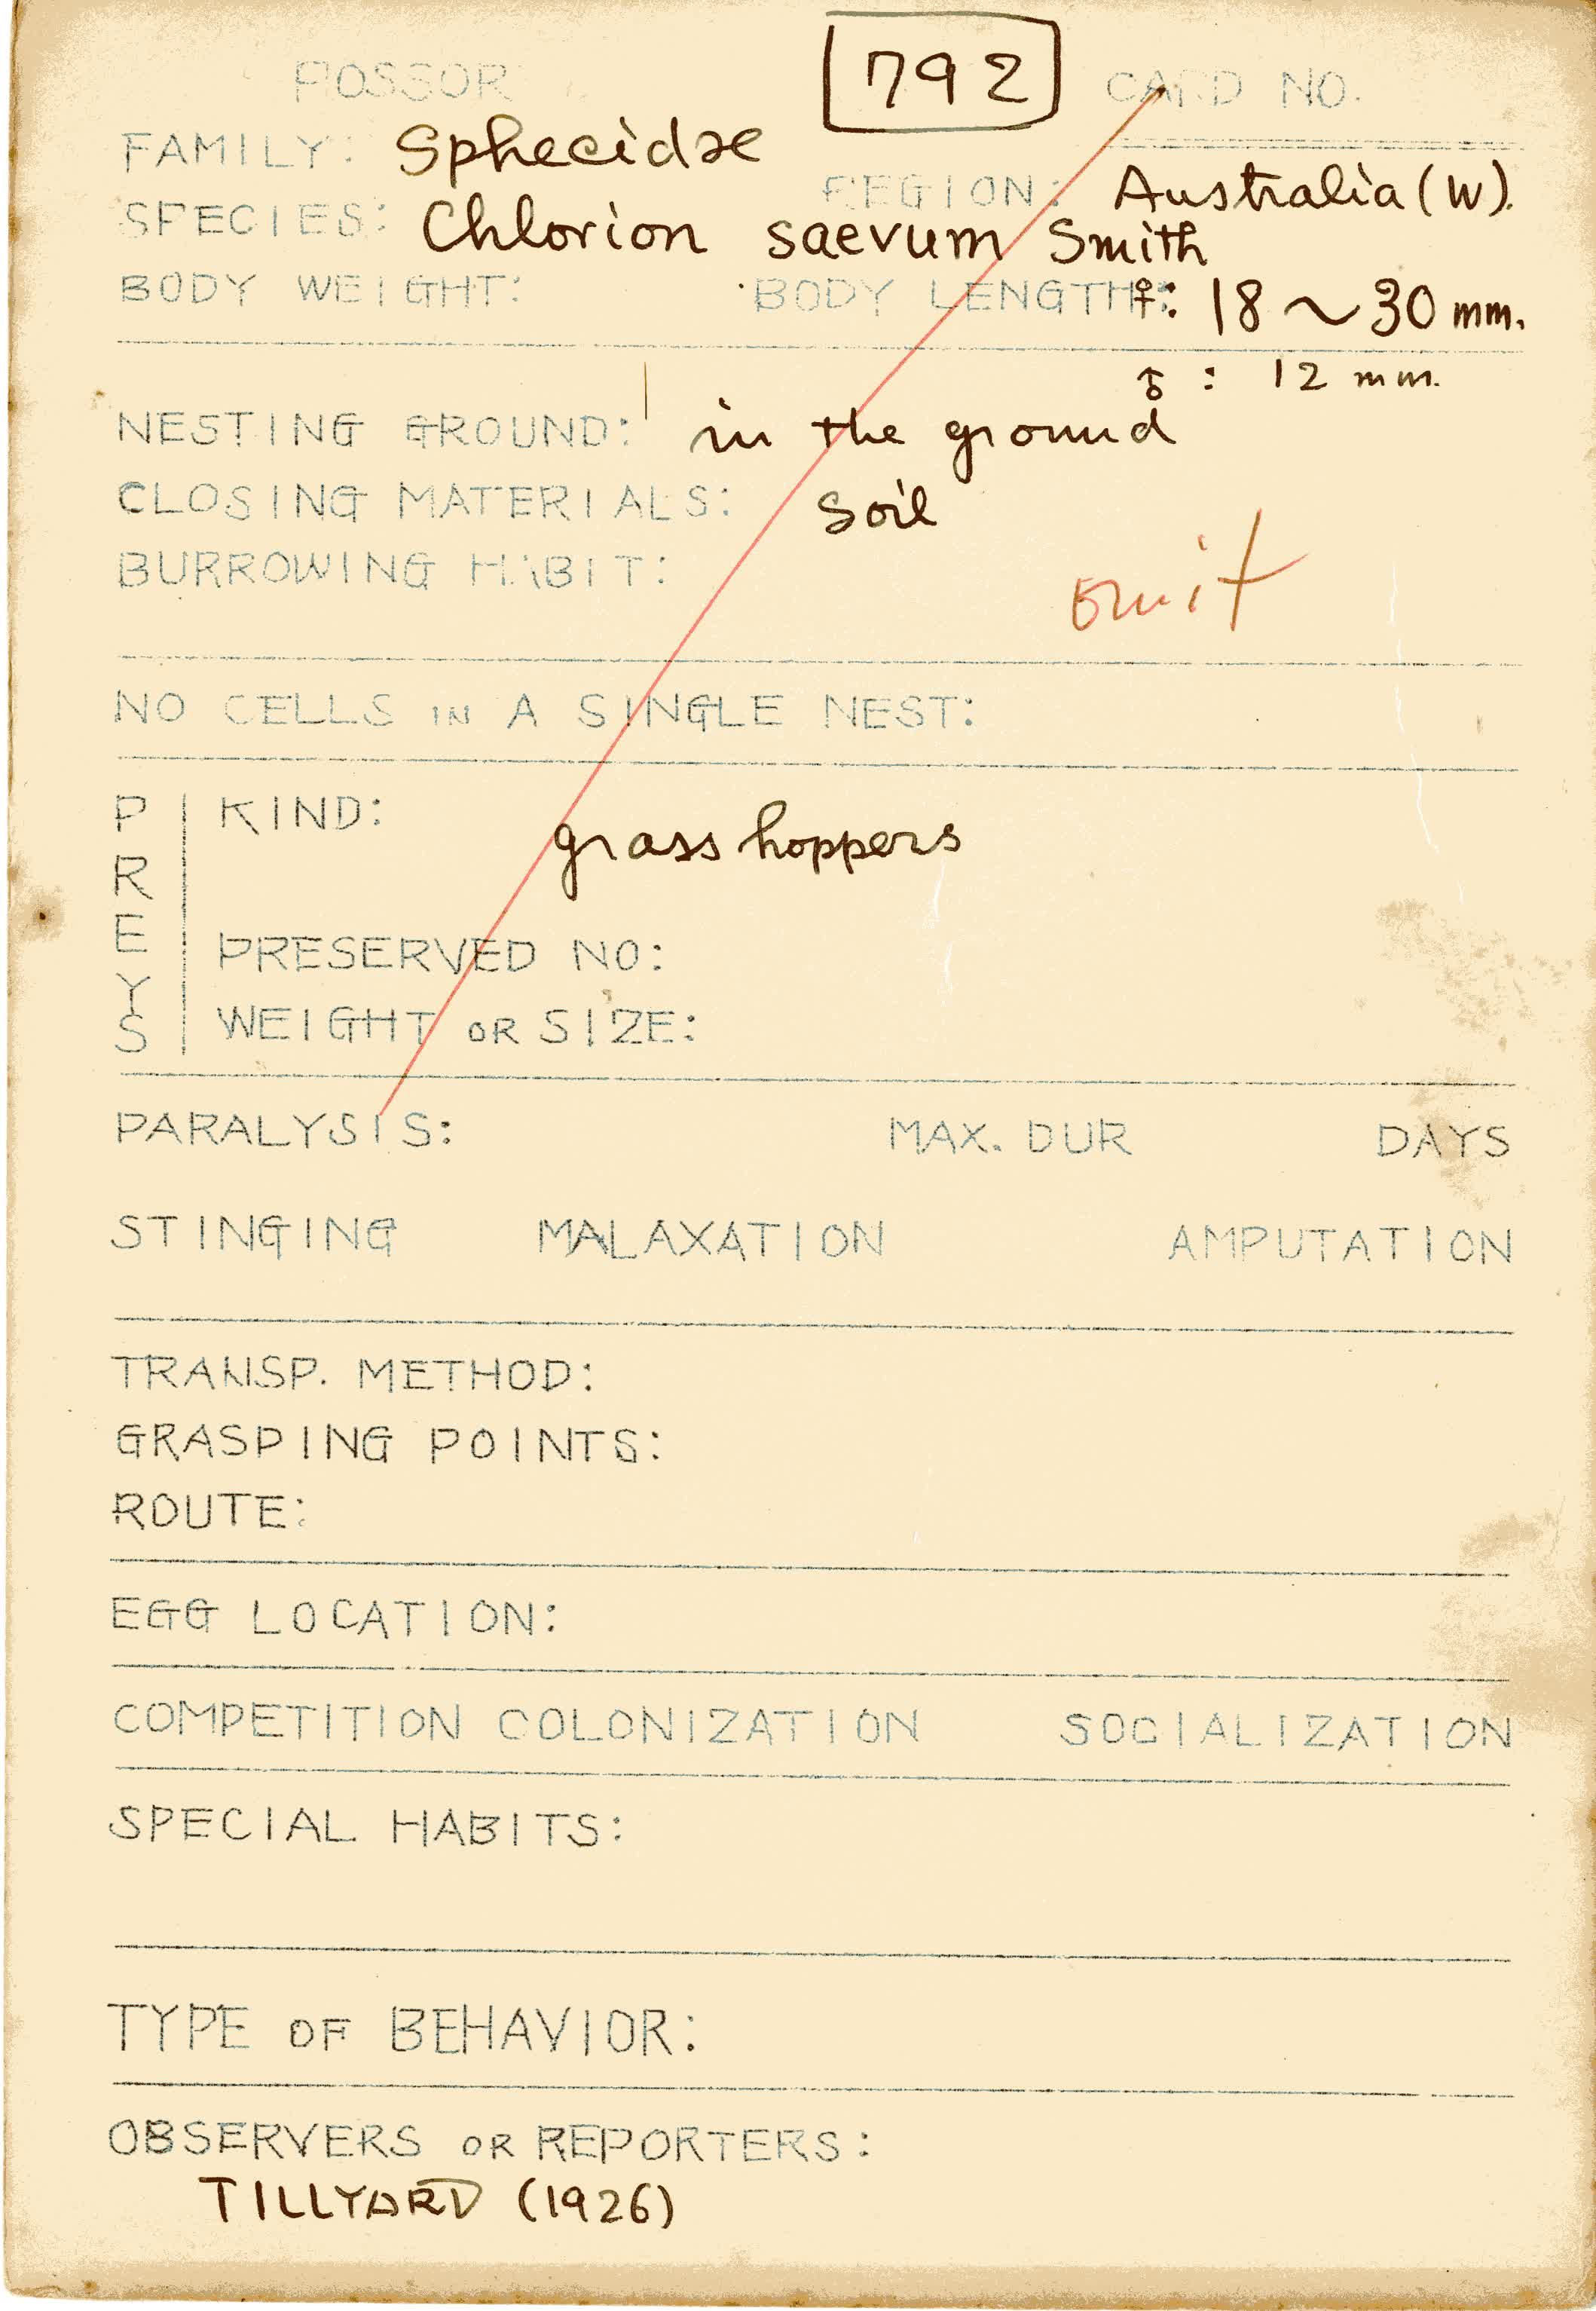 FOSSOR 792 CARD NO.
FAMILY: Sphecidae
REGION: Australia (W).
SPECIES: Chlorion saevum Smith
BODY WEIGHT: BODY LENGTH: ♀: 18 ~ 30 mm.
♂: 12 mm.
NESTING GROUND: in the ground
CLOSING MATERIALS: soil
BURROWING HABIT:
omit
NO CELLS IN A SINGLE NEST:
PREYS
KIND: grasshoppers
PRESERVED NO:
WEIGHT OR SIZE:
PARALYSIS: MAX. DUR DAYS
STINGING MALAXATION AMPUTATION
TRANSP. METHOD:
GRASPING POINTS:
ROUTE:
EGG LOCATION:
COMPETITION COLONIZATION SOCIALIZATION
SPECIAL HABITS:
TYPE OF BEHAVIOR:
OBSERVERS OR REPORTERS:
TILLYARD (1926)